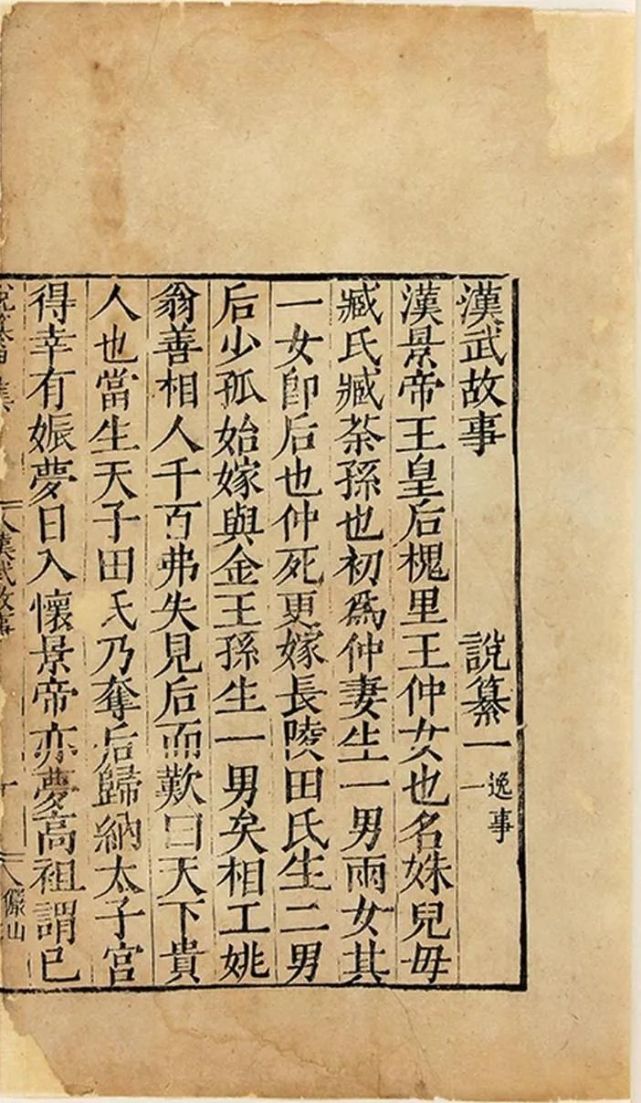 漢武故事 說纂一 逸事一
漢景帝王皇后槐里王仲女也名姝兒毋
臧氏臧荼孫也初為仲妻生一男兩女其
一女卽后也仲死更嫁長陵田氏生二男
后少孤始嫁與金王孫生一男矣相工姚
翁善相人千百弗失見后而歎曰天下貴
人也當生天子田氏乃奪后歸納太子宮
得幸有娠夢日入懷景帝亦夢高祖謂已
漢武故事